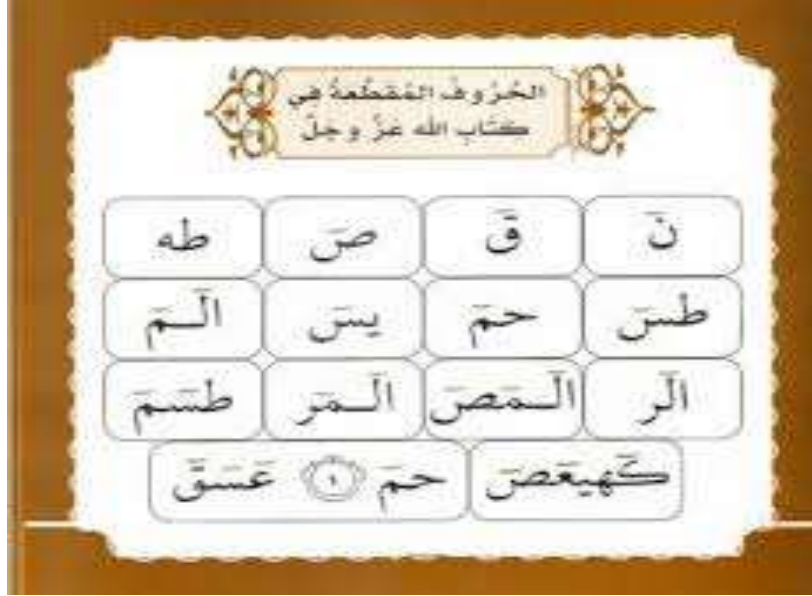 الحُرُوفُ المُقَطَّعةُ فِي
كتَابِ الله عَزَّ وجَلَّ
نَ قَ صَ طه
طسَ حمَ يسَ الَـمَ
الَر الَـمَصَ الَـمَر طسَمَ
كَهيعَصَ حمَ ١ عَسَقَ